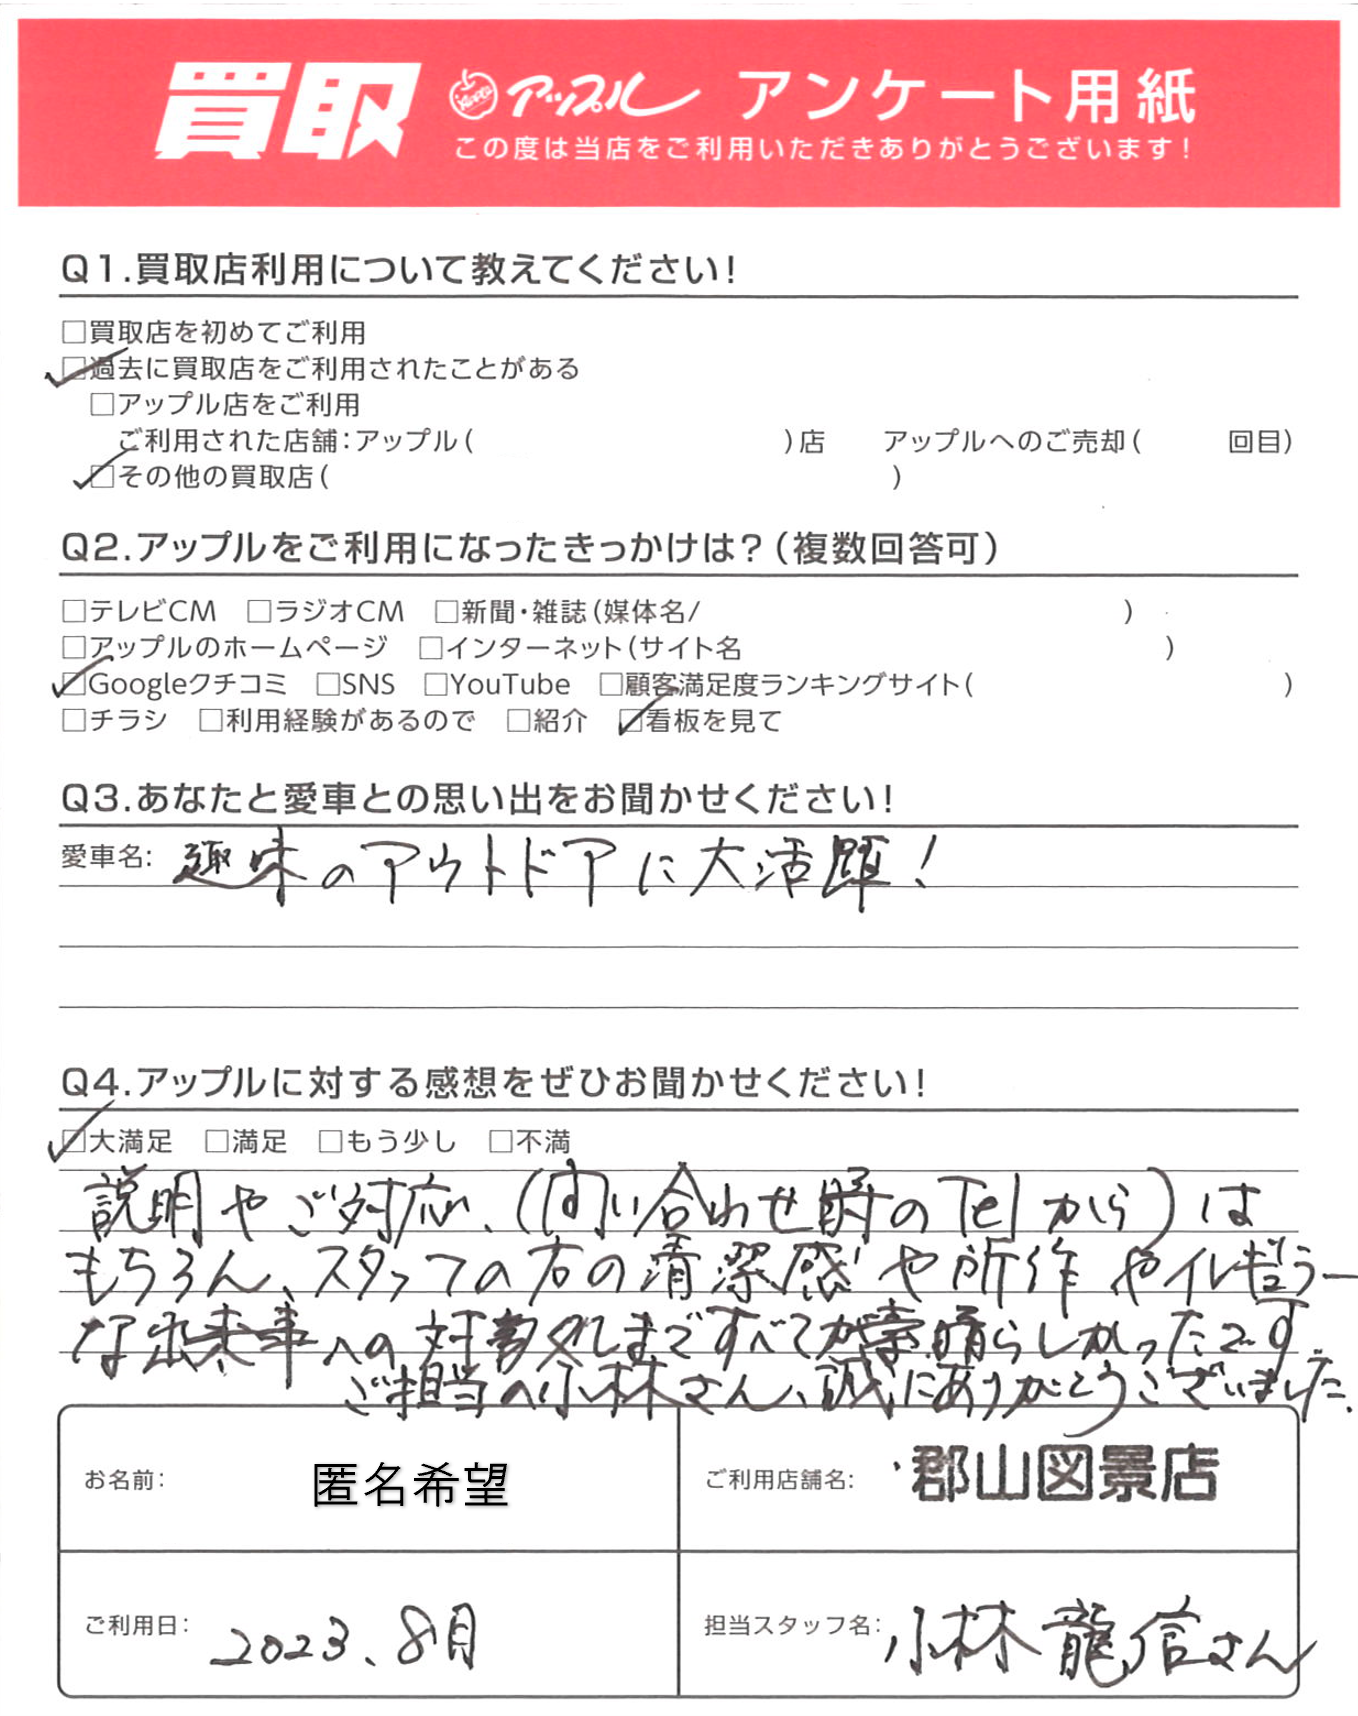 買取 アップル アンケート用紙
この度は当店をご利用いただきありがとうございます!
Q1.買取店利用について教えてください!
□買取店を初めてご利用
☑過去に買取店をご利用されたことがある
□アップル店をご利用
ご利用された店舗:アップル( )店 アップルへのご売却( 回目)
☑その他の買取店( )
Q2.アップルをご利用になったきっかけは?(複数回答可)
□テレビCM □ラジオCM □新聞・雑誌(媒体名/ )
□アップルのホームページ □インターネット(サイト名 )
☑Googleクチコミ □SNS □YouTube □顧客満足度ランキングサイト( )
□チラシ □利用経験があるので □紹介 ☑看板を見て
Q3.あなたと愛車との思い出をお聞かせください!
愛車名: 趣味のアウトドアに大活躍!
Q4.アップルに対する感想をぜひお聞かせください!
☑大満足 □満足 □もう少し □不満
説明やご対応、(問い合わせ時のTelから)は
もちろん、スタッフの方の清潔感や所作やイレギュラー
な出来事への対処まですべてが素晴らしかったです。
ご担当の小林さん、誠にありがとうございました。
お名前: 匿名希望 ご利用店舗名: 郡山図景店
ご利用日: 2023、8月 担当スタッフ名: 小林龍信さん